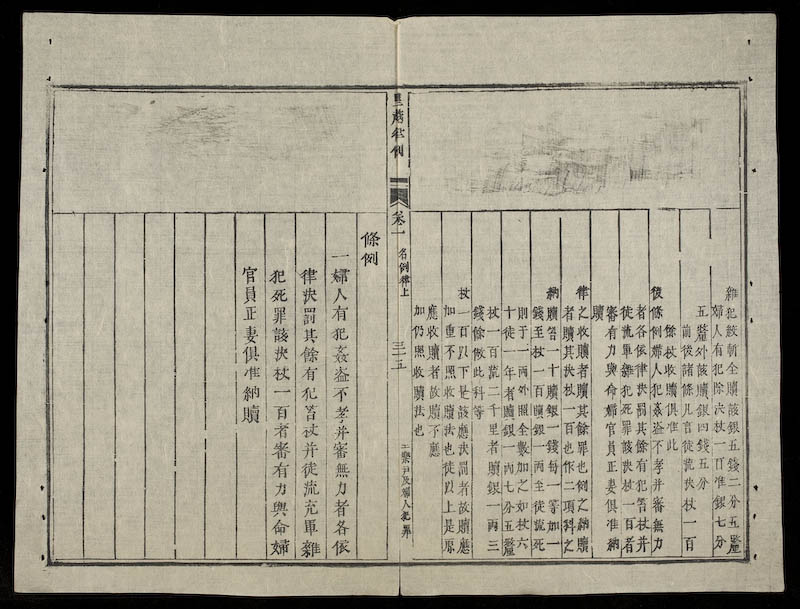 雜犯絞斬全贖該銀五錢二分五釐
婦人有犯除決杖一百准銀七分
五釐外該贖銀四錢五分
前後諸條凡言徒流決杖一百
餘杖收贖俱准此
後條例婦人犯姦盜不孝并審無力
者各依律決罰其餘有犯笞杖并
徒流軍雜犯死罪該決杖一百者
審有力與命婦官員正妻俱准納
贖
律之收贖者贖其餘罪也例之納贖
者贖其決杖一百也作二項科之
納贖笞一十贖銀一錢每一等加一
錢至杖一百贖銀一兩至徒流死
則于一兩外照全數加之如杖六
十徒一年者贖銀一兩七分五釐
杖一百流二千里者贖銀一兩三
錢餘倣此科等
杖一百以下是該應決罰者故贖應
加重不照收贖法也徒以上是原
應收贖者故贖不應
加仍照收贖法也
律例
卷一 名例律上 三十五 工樂戶及婦人犯罪
條例
一婦人有犯姦盜不孝并審無力者各依
律決罰其餘有犯笞杖并徒流充軍雜
犯死罪該決杖一百者審有力與命婦
官員正妻俱准納贖